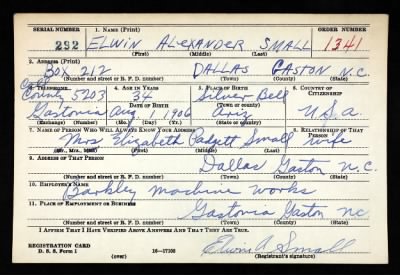 SERIAL NUMBER 1. NAME (Print) ORDER NUMBER
292 ELWIN ALEXANDER SMALL 1341
(First) (Middle) (Last)
2. ADDRESS (Print)
BOX 212 DALLAS GASTON N.C.
(Number and street or R. F. D. number) (Town) (County) (State)
3. TELEPHONE 4. AGE IN YEARS 5. PLACE OF BIRTH 6. COUNTRY OF CITIZENSHIP
County 5203 34 Silver Bell
DATE OF BIRTH (Town or county)
Gastonia Aug. 1906 Ariz U.S.A.
(Exchange) (Number) (Mo.) (Day) (Yr.) (State or country)
7. NAME OF PERSON WHO WILL ALWAYS KNOW YOUR ADDRESS 8. RELATIONSHIP OF THAT PERSON
Mrs Elizabeth Padgett Small wife
(Mr., Mrs., Miss) (First) (Middle) (Last)
9. ADDRESS OF THAT PERSON
Dallas Gaston N.C.
(Number and street or R. F. D. number) (Town) (County) (State)
10. EMPLOYER'S NAME
Barkley machine works
11. PLACE OF EMPLOYMENT OR BUSINESS
Gastonia Gaston NC
(Number and street or R. F. D. number) (Town) (County) (State)
I AFFIRM THAT I HAVE VERIFIED ABOVE ANSWERS AND THAT THEY ARE TRUE.
REGISTRATION CARD
D. S. S. Form 1 16—17105 Elwin A Small
(over) (Registrant's signature)